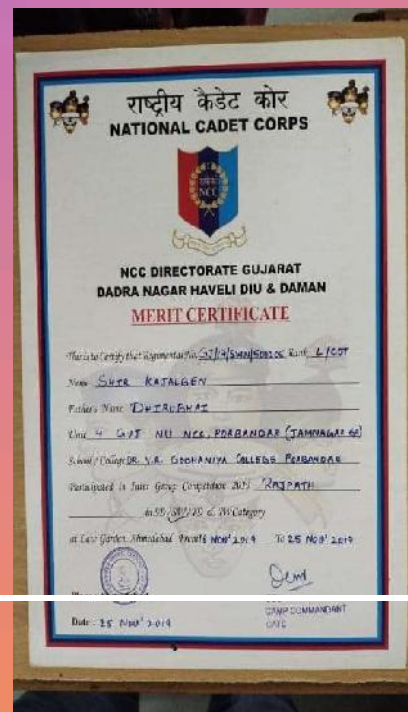 राष्ट्रीय कैडेट कोर
NATIONAL CADET CORPS
NCC
NCC DIRECTORATE GUJARAT
DADRA NAGAR HAVELI DIU & DAMAN
MERIT CERTIFICATE
This is to Certify that Regimental No. Rank L/CDT
Name SHIR KAJALBEN
Father's Name DHIRUBHAI
Unit 4 GUJ NU NCC, PORBANDAR (JAMNAGAR GP)
School / College DR. V.R. GODHANIYA COLLEGE PORBANDAR
Participated in Inter Group Competition 2019 RAJPATH
in SD/SW/JD & JW Category
at Law Garden, Ahmedabad From 16 NOV' 2019 To 25 NOV' 2019
CAMP COMMANDANT
Date : 25 NOV' 2019